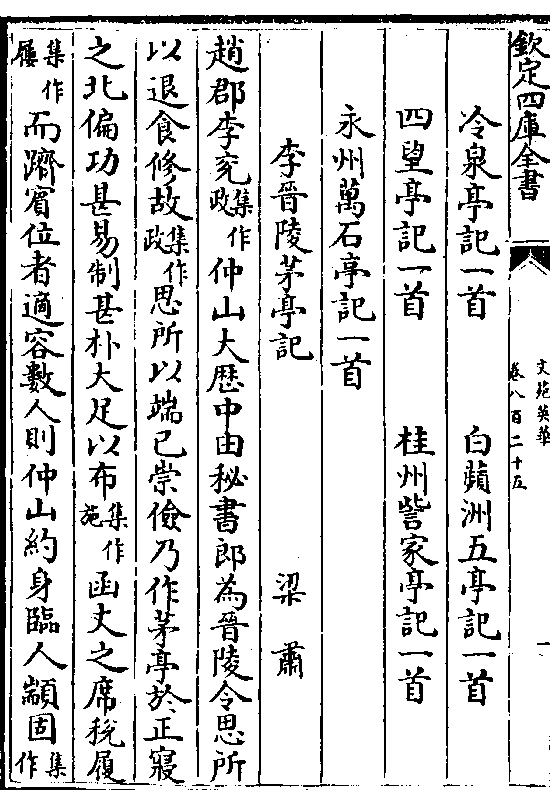 欽定四庫全書
文苑英華
卷八百二十五
一
冷泉亭記一首 白蘋洲五亭記一首
四望亭記一首 桂州訾家亭記一首
永州萬石亭記一首
李晉陵茅亭記 梁 肅
趙郡李兖集作政仲山大歴中由秘書郎為晉陵令思所
以退食修故集作政思所以端已崇儉乃作茅亭於正寢
之北偏功甚易制甚朴大足以布集作施函丈之席稅履
集作屨而躋賔位者適容數人則仲山約身臨人顓固集作